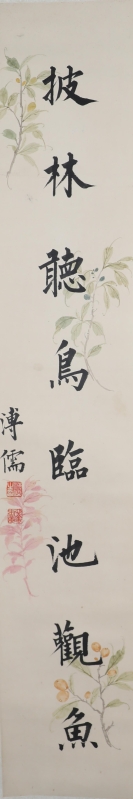 披林聽鳥臨池觀魚
溥儒